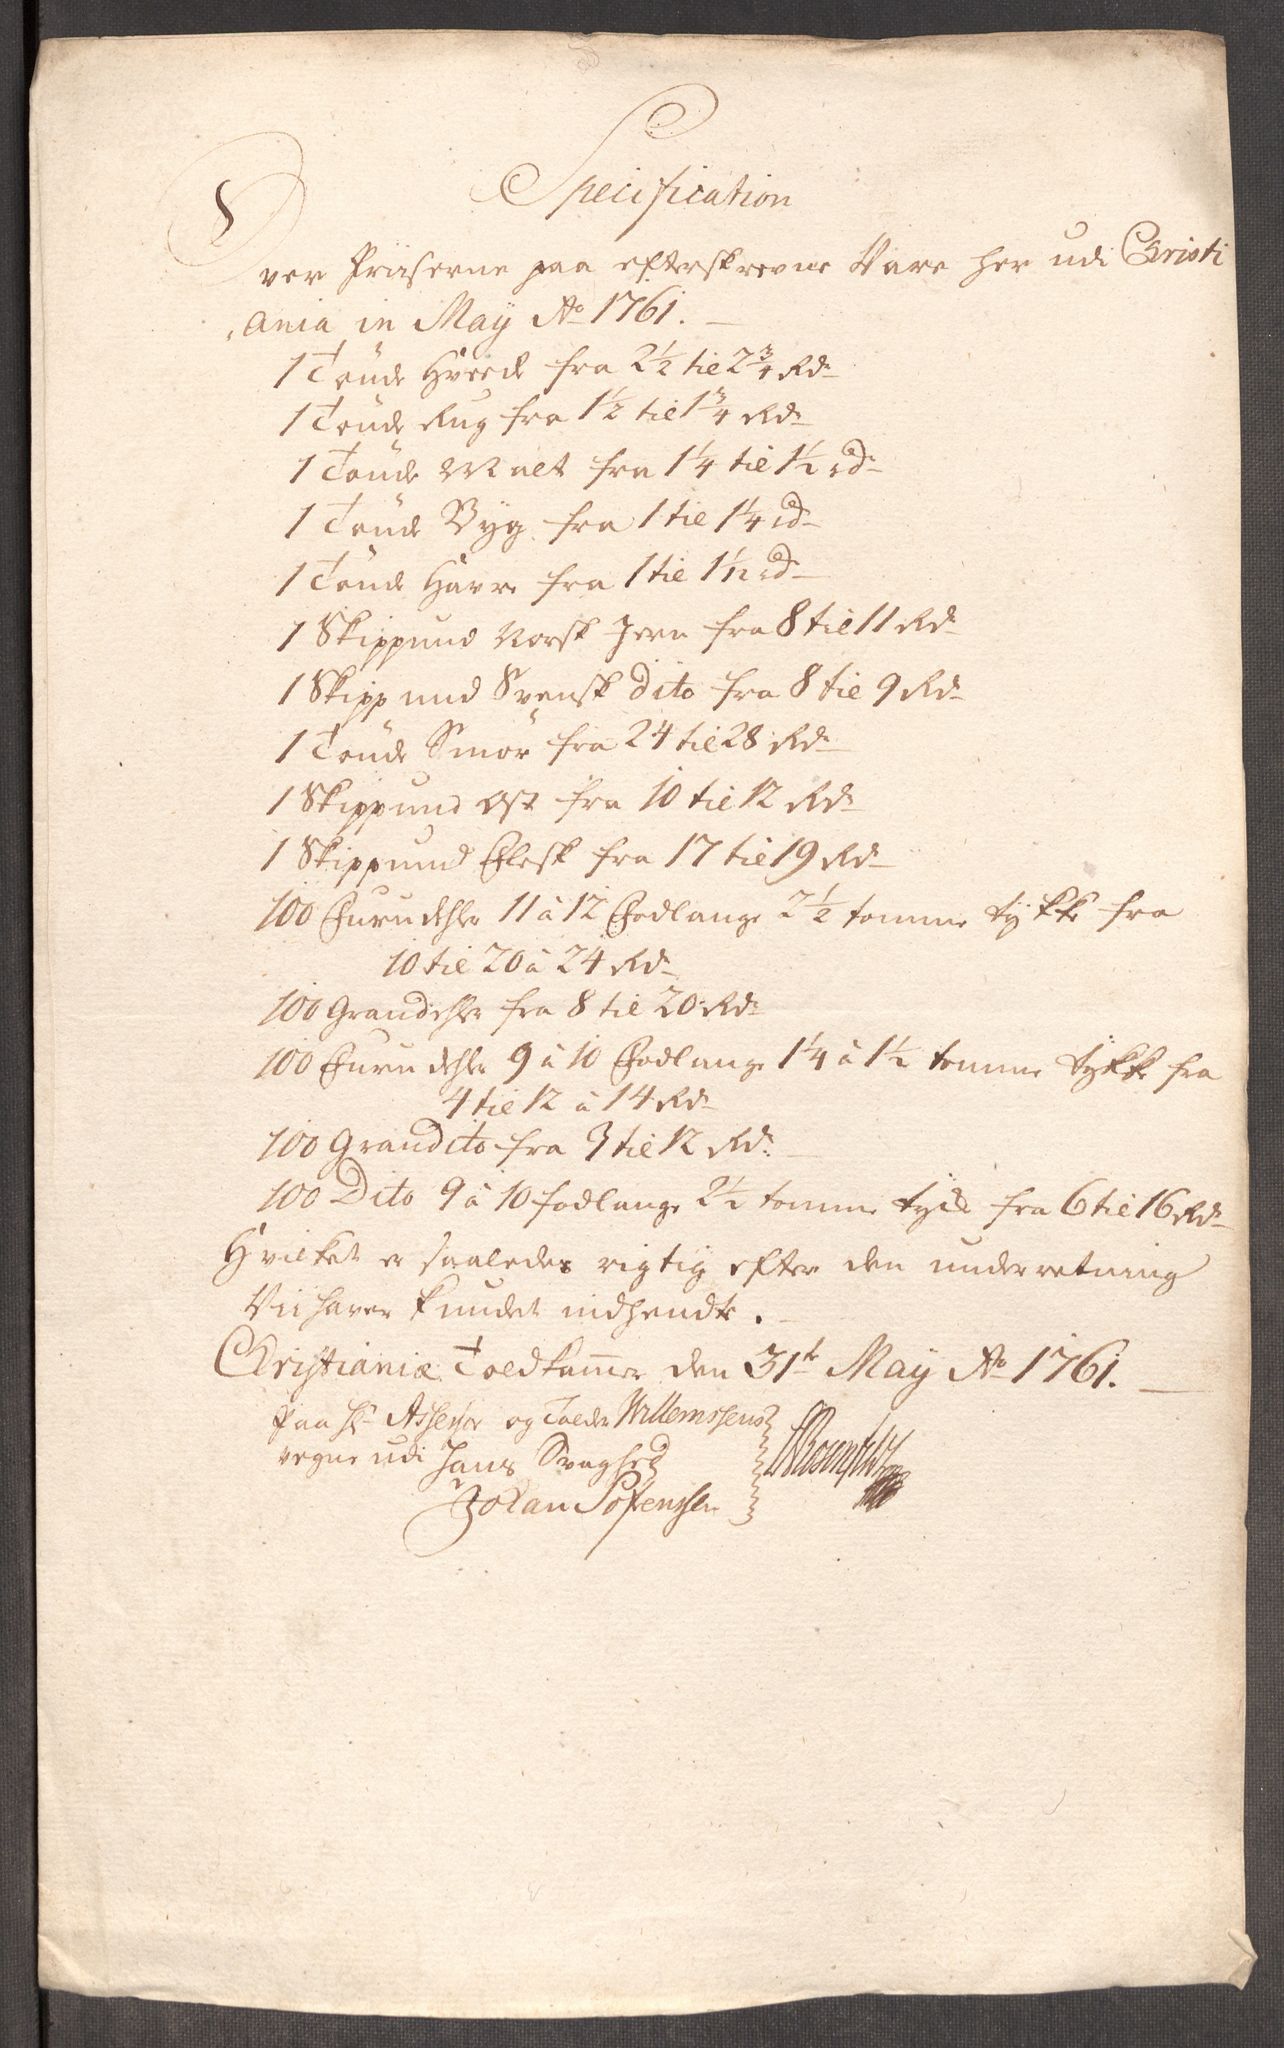 Specification
Over Priiserne paa efterskrevne Vare her udi Christi
ania in Maÿ Ao 1761.
1 Tønde Hvede fra 2½ til 2¾ Rdr
1 Tønde Rug fra 1½ til 1¾ Rdr
1 Tønde Malt fra 1¼ til 1½ rdr
1 Tønde Byg fra 1 til 1¼ rdr
1 Tønde Havre fra 1 til 1½ rdr
1 Skippund Norsk Jern fra 8 til 11 Rdr
1 Skippund Svensk dito fra 8 til 9 Rdr
1 Tønde Smør fra 24 til 28 Rdr
1 Skippund Ost fra 10 til 12 Rdr
1 Skippund Flesk fra 17 til 19 Rdr
100 Furudehler 11 à 12 Fodlange 2½ tomme tykke fra
10 til 20 à 24 Rdr
100 Grandehler fra 8 til 20 Rdr
100 Furudehler 9 à 10 Fodlange 1¼ à 1½ tomme tykke fra
4 til 12 à 14 Rdr
100 Gran dito fra 3 til 12 Rdr.
100 Dito 9 à 10 fodlange 2½ tomme fra 6 til 16 Rdr
Hvilket er saaledes rigtig efter den underretning
Vii haver kundet indhendte.
Christianiæ Toldkammer den 31te Maÿ Ao 1761.
Paa Hr Assessor og Tolder Willemssens
vegne udi hans Svaghed
Johan Sørenssen